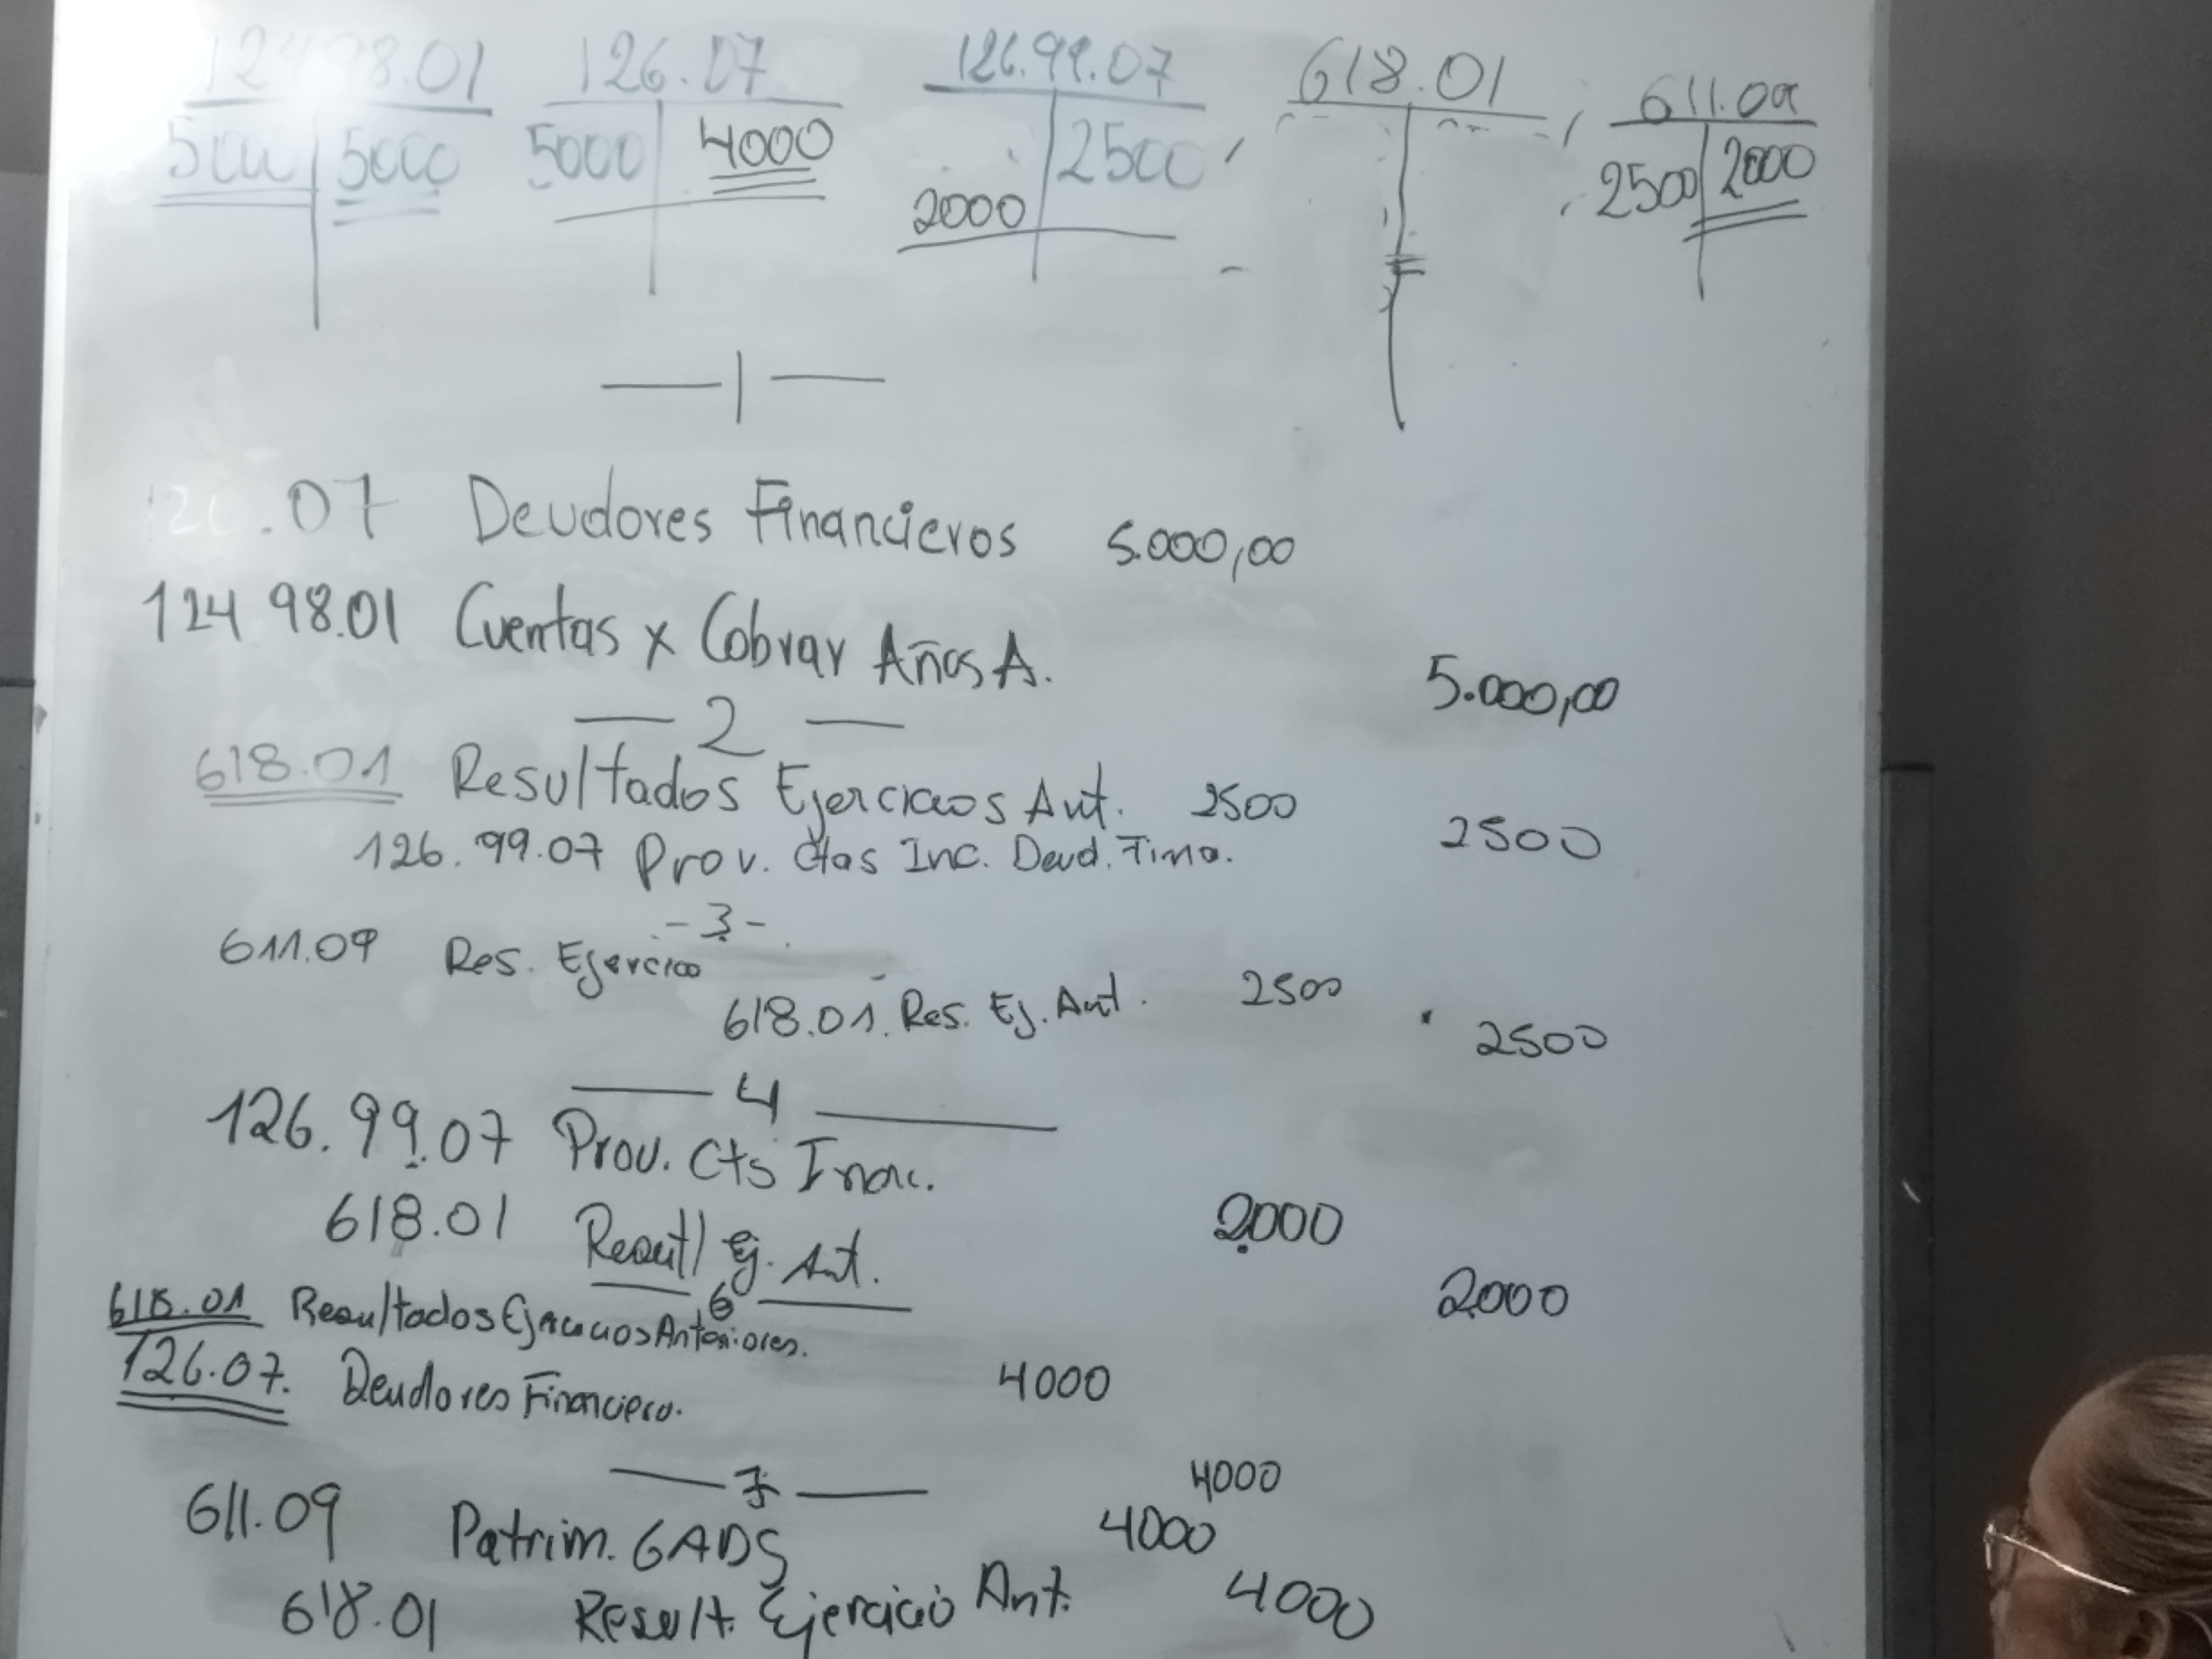 124 98.01 126.07 126.99.07 618.01 611.09
5000 5000 5000 4000 2500 2500 2000
2000
1
126.07 Deudores Financieros 5.000,00
124 98.01 Cuentas x Cobrar Años A. 5.000,00
2
618.01 Resultados Ejercicios Ant. 2500
126.99.07 Prov. Ctas Inc. Deud. Fina. 2500
- 3 -
611.09 Res. Ejercicio 2500
618.01. Res. Ej. Ant. 2500
4
126.99.07 Prov. Cts Inc. 2000
618.01 Result Ej. Ant. 2000
6
618.01 Resultados Ejercicios Anteriores. 4000
126.07. Deudores Financiero. 4000
7
611.09 Patrim. GADS 4000
618.01 Result. Ejercicio Ant. 4000